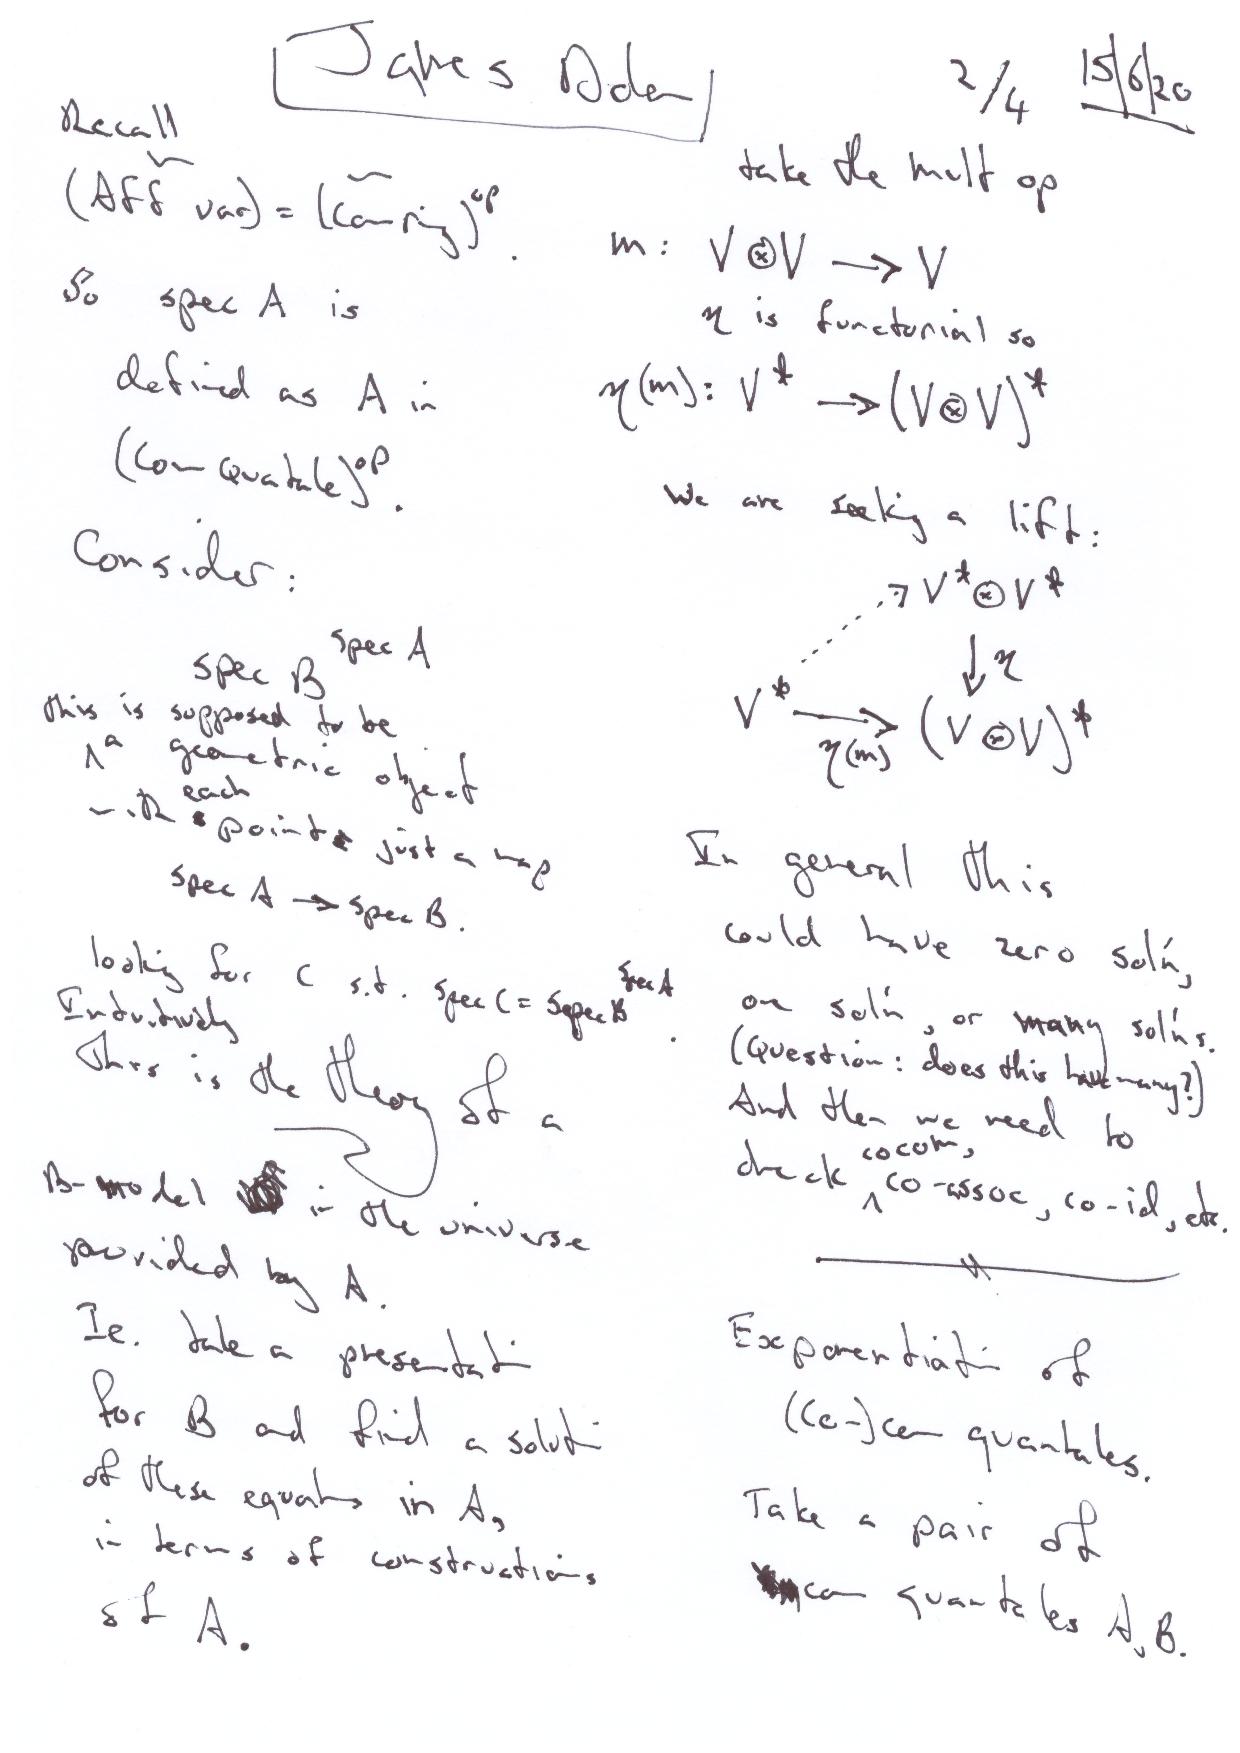 James Dolan
2/4 15/6/20
Recall
(Aff var) = (Com ring)^op.
So spec A is
defined as A in
(Com Quatale)^op.
Consider:
spec B^spec A
this is supposed to be
^a geometric object
with each point just a map
spec A → spec B.
looking for C s.t. spec C = spec B^spec A.
Intuitively
This is the theory of a
B-model in the universe
provided by A.
Ie. take a presentati
for B and find a soluti
of these equats in A,
in terms of constructions
of A.
take the mult op
m: V ⊗ V → V
η is functorial so
η(m): V* → (V ⊗ V)*
We are seeking a lift:
V* ⊗ V*
↓ η
V* → (V ⊗ V)*
η(m)
In general this
could have zero sol'n,
one sol'n, or many sol'ns.
(Question: does this have many?)
And then we need to
cocom,
check ^ co-assoc, co-id, etc.
Exponentiati of
(Co-)com quantales.
Take a pair of
com quantales A, B.